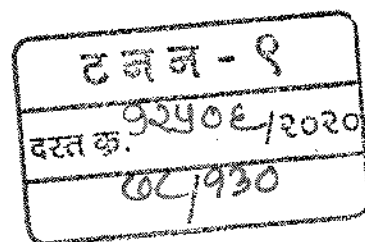 ट न न - ९
दस्त क्र. १२५०६/२०२०
७८/१३०